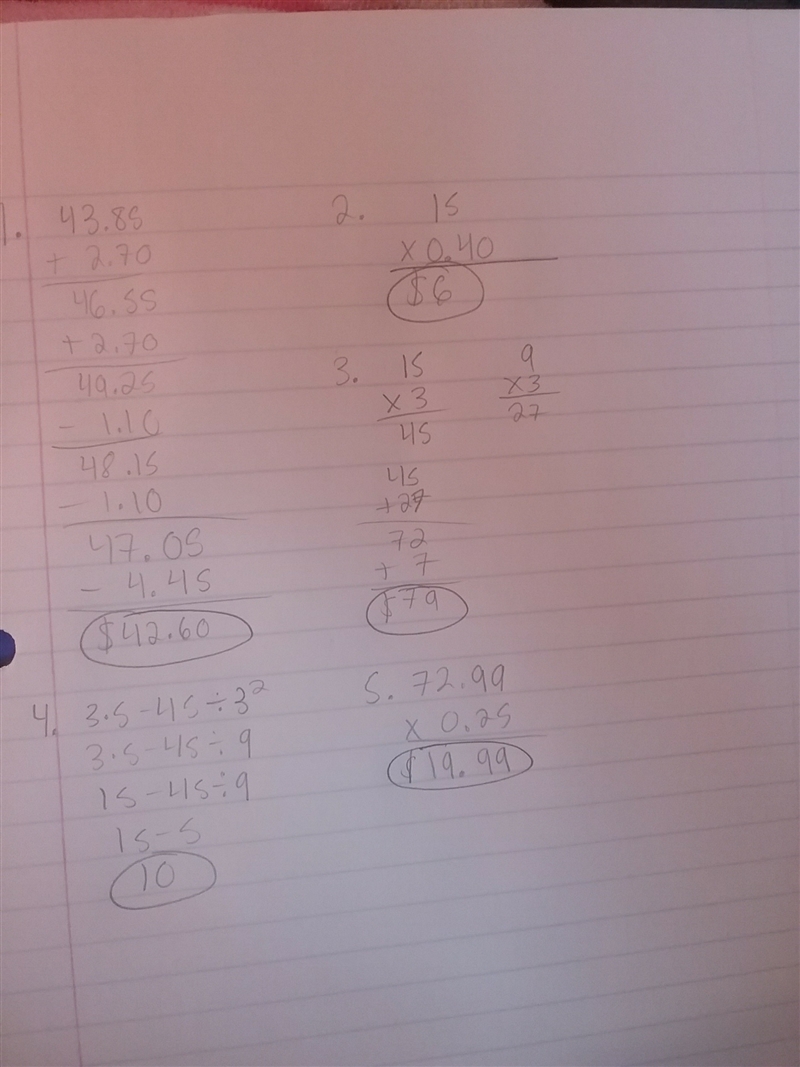 1. 43.85
+ 2.70
46.55
+ 2.70
49.25
- 1.10
48.15
- 1.10
47.05
- 4.45
$42.60
2. 15
x 0.40
$6
3. 15
x 3
45
9
x3
27
45
+ 27
72
+ 7
$79
4. 3·5-45÷3²
3·5-45÷9
15-45÷9
15-5
10
5. 72.99
x 0.25
$19.99